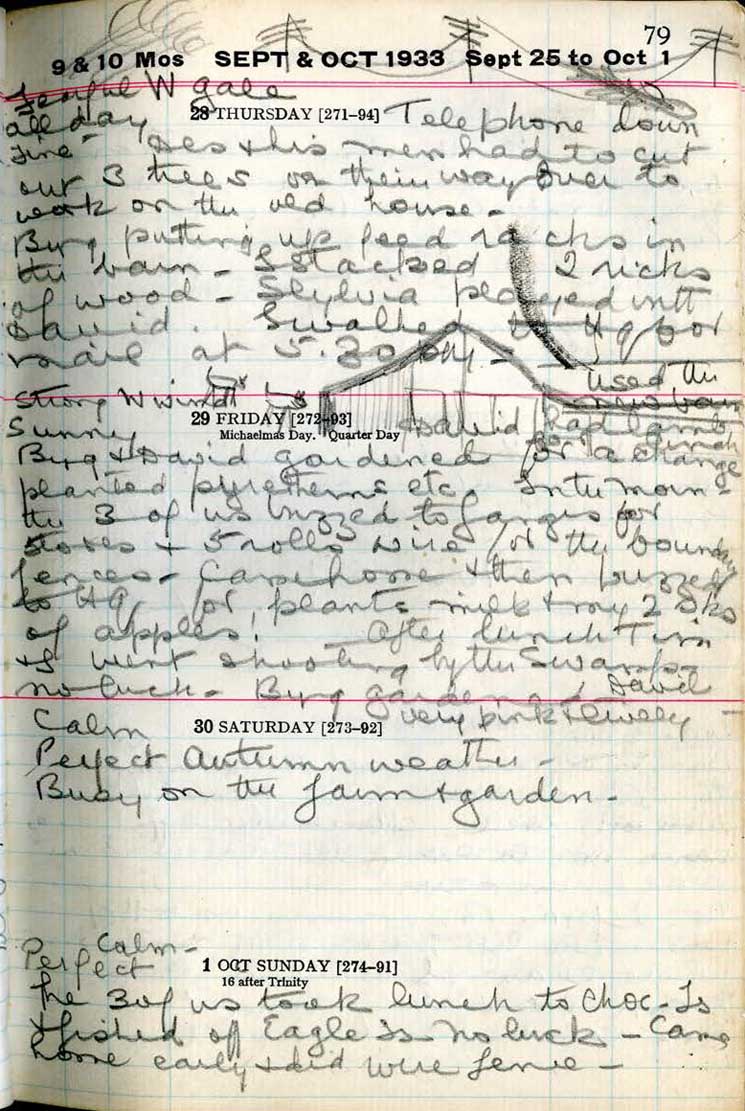 79
9 & 10 Mos SEPT & OCT 1933 Sept 25 to Oct 1
W gale
all day 28 THURSDAY [271-94] Telephone down
Fine - Des & his men had to cut
out 3 trees on their way over to
work on the old house -
Byrg putting up feed racks in
the barn - I stacked 2 ricks
of wood - Sylvia played with
David. I walked to Hq for
mail at 5.30 pm -
used the
Strong W wind new barn
29 FRIDAY [272-93] David had lamb
Sunny Michaelmas Day. Quarter Day for lunch
Byrg & David gardened for a change
planted pyrethems etc. In the morn -
the 3 of us buzzed to Ganges for
stores & 5 rolls wire for the boundary
fences - Came home & then buzzed
to Hq for plants milk & my 2 sks
of apples! After lunch Tim
& I went shooting by the Swamp -
no luck - Byrg gardened, David
very pink & lively -
Calm 30 SATURDAY [273-92]
Perfect Autumn weather -
Busy on the farm & garden -
Calm -
Perfect 1 OCT SUNDAY [274-91]
16 after Trinity
The 3 of us took lunch to Choc - Is
& fished off Eagle Is no luck - Came
home early & did wire fence -